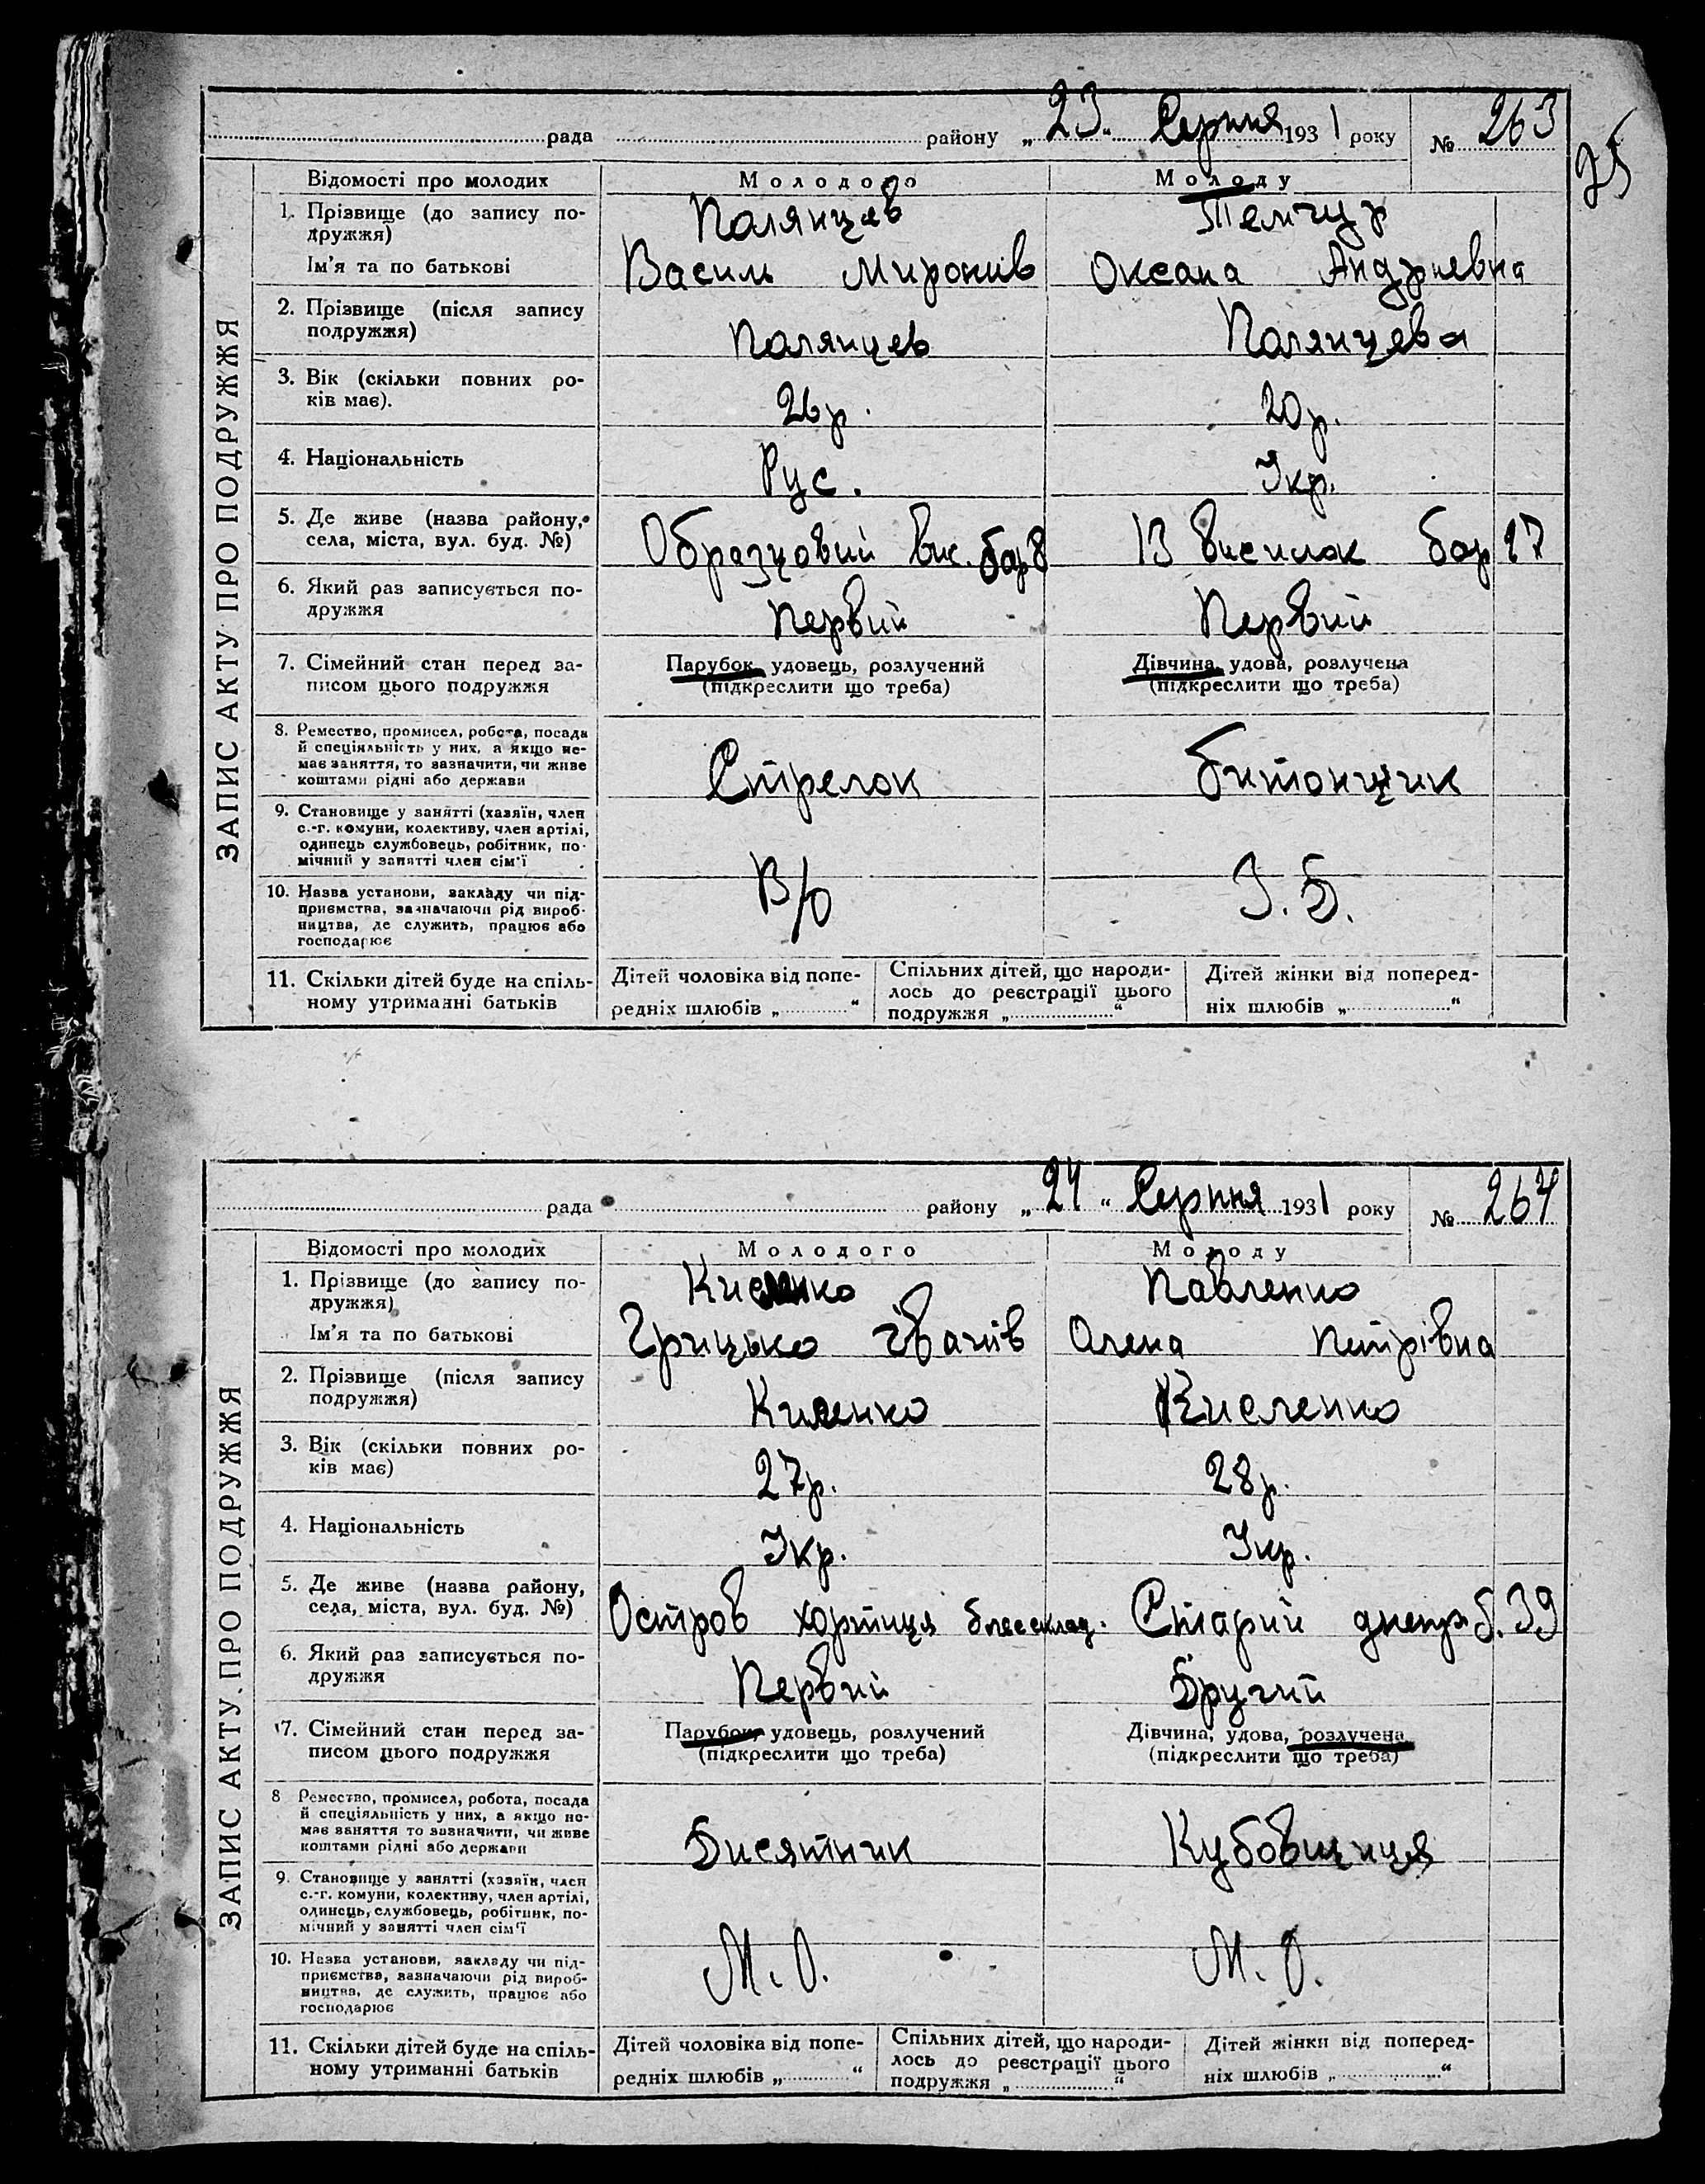 рада району „23“ Серпня 1931 року № 263
25
ЗАПИС АКТУ ПРО ПОДРУЖЖЯ
Відомості про молодих Молодого Молоду
1. Прізвище (до запису по-
дружжя) Полянцев Темчур
Ім'я та по батькові Василь Миронів Оксана Андриевна
2. Прізвище (після запису
подружжя) Полянцев Полянцева
3. Вік (скільки повних ро-
ків має). 26р. 20р.
4. Національність Рус. Укр.
5. Де живе (назва району,
села, міста, вул. буд. №) Образцовий вис. бар 8 13 висилок бар 27
6. Який раз записується по-
дружжя Первий Первий
7. Сімейний стан перед за-
писом цього подружжя
Парубок, удовець, розлучений
(підкреслити що треба)
Дівчина, удова, розлучена
(підкреслити що треба)
8. Ремество, промисел, робота, посада
й спеціяльність у них, а якщо не-
має заняття, то зазначити, чи живе
коштами рідні або держави
Стрелок битонщик
9. Становище у занятті (хазяїн, член
с.-г. комуни, колективу, член артілі,
одинець службовець, робітник, по-
мічний у занятті член сім'ї
10. Назва установи, закладу чи під-
приємства, зазначаючи рід вироб-
ництва, де служить, працює або
господарює
В/о З. Б.
11. Скільки дітей буде на спіль-
ному утриманні батьків
Дітей чоловіка від попе-
редніх шлюбів „ “
Спільних дітей, що народи-
лось до реєстрації цього
подружжя „ “
Дітей жінки від поперед-
ніх шлюбів „ “
рада району „24“ Серпня 1931 року № 264
ЗАПИС АКТУ ПРО ПОДРУЖЖЯ
Відомості про молодих Молодого Молоду
1. Прізвище (до запису по-
дружжя) Павленко
Ім'я та по батькові Грицько Іванів Олена Петрівна
2. Прізвище (після запису
подружжя) Кисленко
3. Вік (скільки повних ро-
ків має) 27р. 28р.
4. Національність Укр. Укр.
5. Де живе (назва району,
села, міста, вул. буд. №) Остров хортиця Старий днепр б. 39
6. Який раз записується по-
дружжя Первий Другий
7. Сімейний стан перед за-
писом цього подружжя
Парубок, удовець, розлучений
(підкреслити що треба)
Дівчина, удова, розлучена
(підкреслити що треба)
8 Ремество, промисел, робота, посада
й спеціяльність у них, а якщо не-
має заняття то зазначити, чи живе
коштами рідні або держави
Дисятник Кубовщиця
9. Становище у занятті (хазяїн, член
с.-г. комуни, колективу, член артілі,
одинець, службовець, робітник, по-
мічний у занятті член сім'ї
10. Назва установи, закладу чи під-
приємства, зазначаючи рід вироб-
ництва, де служить, працює або
господарює
М. О. М. О.
11. Скільки дітей буде на спіль-
ному утриманні батьків
Дітей чоловіка від попе-
редніх шлюбів „ “
Спільних дітей, що народи-
лось до реєстрації цього
подружжя „ “
Дітей жінки від поперед-
ніх шлюбів „ “